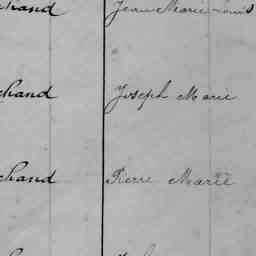 chand Jean Marie Louis
chand Joseph Marie
chand Pierre Marie